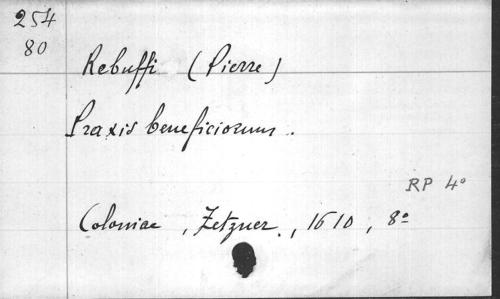 254
80
Rebuffi (Pierre)
Praxis beneficiorum.
RP 4°
Coloniae, Zetzner., 1610, 8°